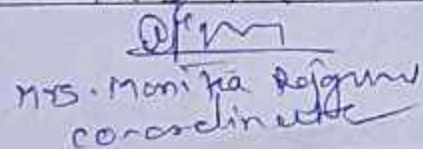 Mrs. Monika Rajguru
Co-ordinator